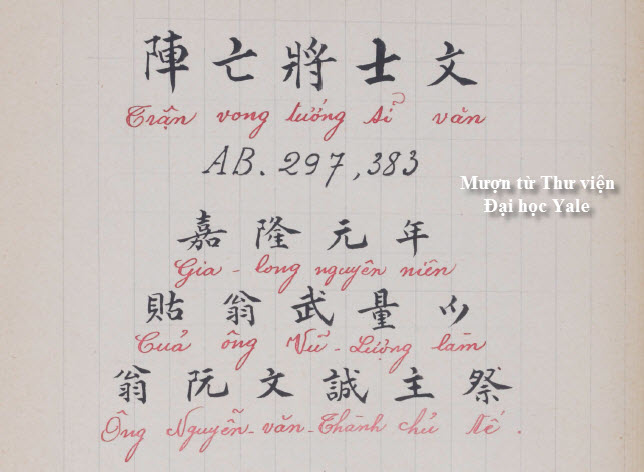 陣亡將士文
Trận vong tướng sỉ văn
AB. 297, 383
Mượn từ Thư viện
Đại học Yale
嘉隆元年
Gia-long nguyên niên
貼翁武量𫜵
Cuả ông Vủ-Lượng làm
翁阮文誠主祭
Ông Nguyễn-văn-Thành chủ tế.